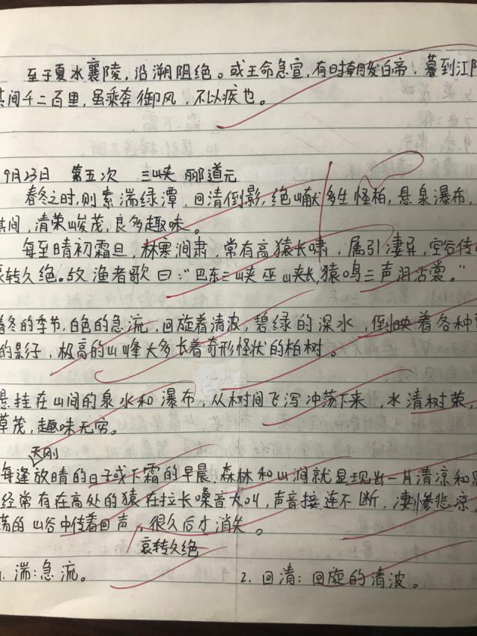 至于夏水襄陵，沿溯阻绝。或王命急宣，有时朝发白帝，暮到江陵
其间千二百里，虽乘奔御风，不以疾也。
9月23日 第五次 三峡 郦道元
春冬之时，则素湍绿潭，回清倒影，绝巘多生怪柏，悬泉瀑布，
其间，清荣峻茂，良多趣味。
每至晴初霜旦，林寒涧肃，常有高猿长啸，属引凄异，空谷传
哀转久绝。故渔者歌曰：“巴东三峡巫峡长，猿鸣三声泪沾裳。”
春冬的季节，白色的急流，回旋着清波，碧绿的深水，倒映着各种
的影子，极高的山峰大多长着奇形怪状的柏树。
悬挂在山间的泉水和瀑布，从树间飞泻冲荡下来，水清树荣，
草茂，趣味无穷。
天刚
每逢放晴的日子或下霜的早晨，森林和山涧就显现出一片清凉和
经常有在高处的猿在拉长嗓音大叫，声音接连不断，凄惨悲凉，
荡的山谷中传着回声，很久后才消失。
哀转久绝
1. 湍：急流。 2. 回清：回旋的清波。